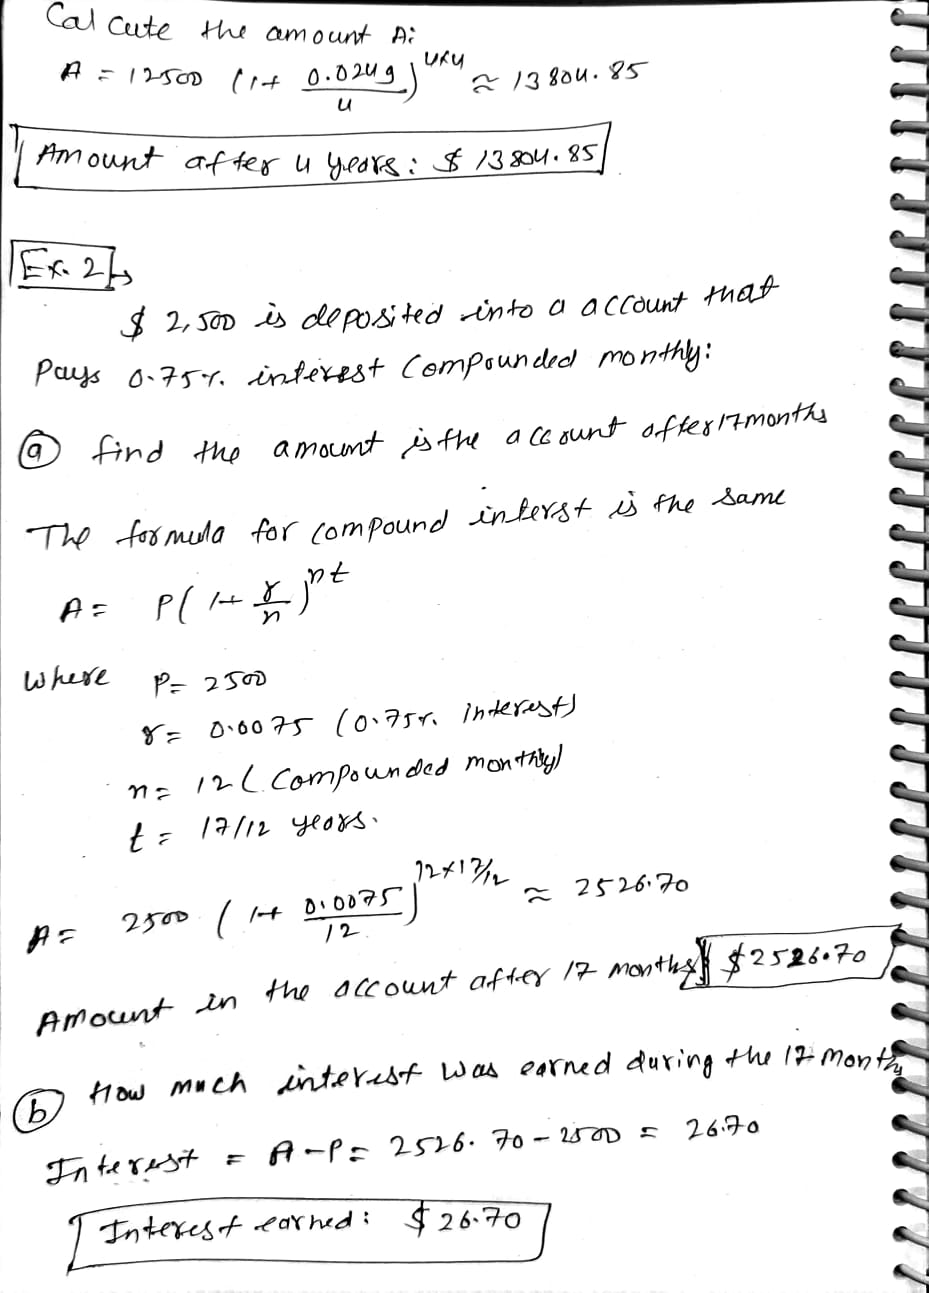 Cal cute the amount A:
A = 12500 (1+ 0.0249/4)^4x4 ≈ 13804.85
Amount after 4 years: $ 13804.85
Ex. 2
$ 2,500 is deposited into a account that
Pays 0.75%. interest Compounded monthly:
(a) find the amount is the account after 17 months
The formula for compound interst is the same
A = P(1+ r/n)^nt
where P = 2500
r = 0.0075 (0.75%. interest)
n = 12 (Compounded monthly)
t = 17/12 years.
A = 2500 (1+ 0.0075/12)^12x17/12 ≈ 2526.70
Amount in the account after 17 months $2526.70
(b) How much interest was earned during the 17 months
Interest = A-P = 2526.70 - 2500 = 26.70
Interest earned: $26.70